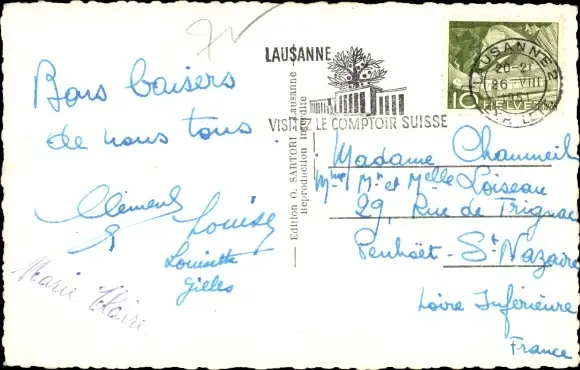 Bons baisers
de nous tous
Clément
Louise
Louisette
Gilles
Marie Claire
Edition O. SARTORI Lausanne
Reproduction interdite
LAUSANNE
VISITEZ LE COMPTOIR SUISSE
10 HELVETIA
LAUSANNE 2
20-21
26 VIII
1951
EXP. LETTR.
Madame Chaumeil
Mme Mr et Melle Loiseau
29, Rue de Trignac
Penhoët - St Nazaire
Loire Inférieure
France